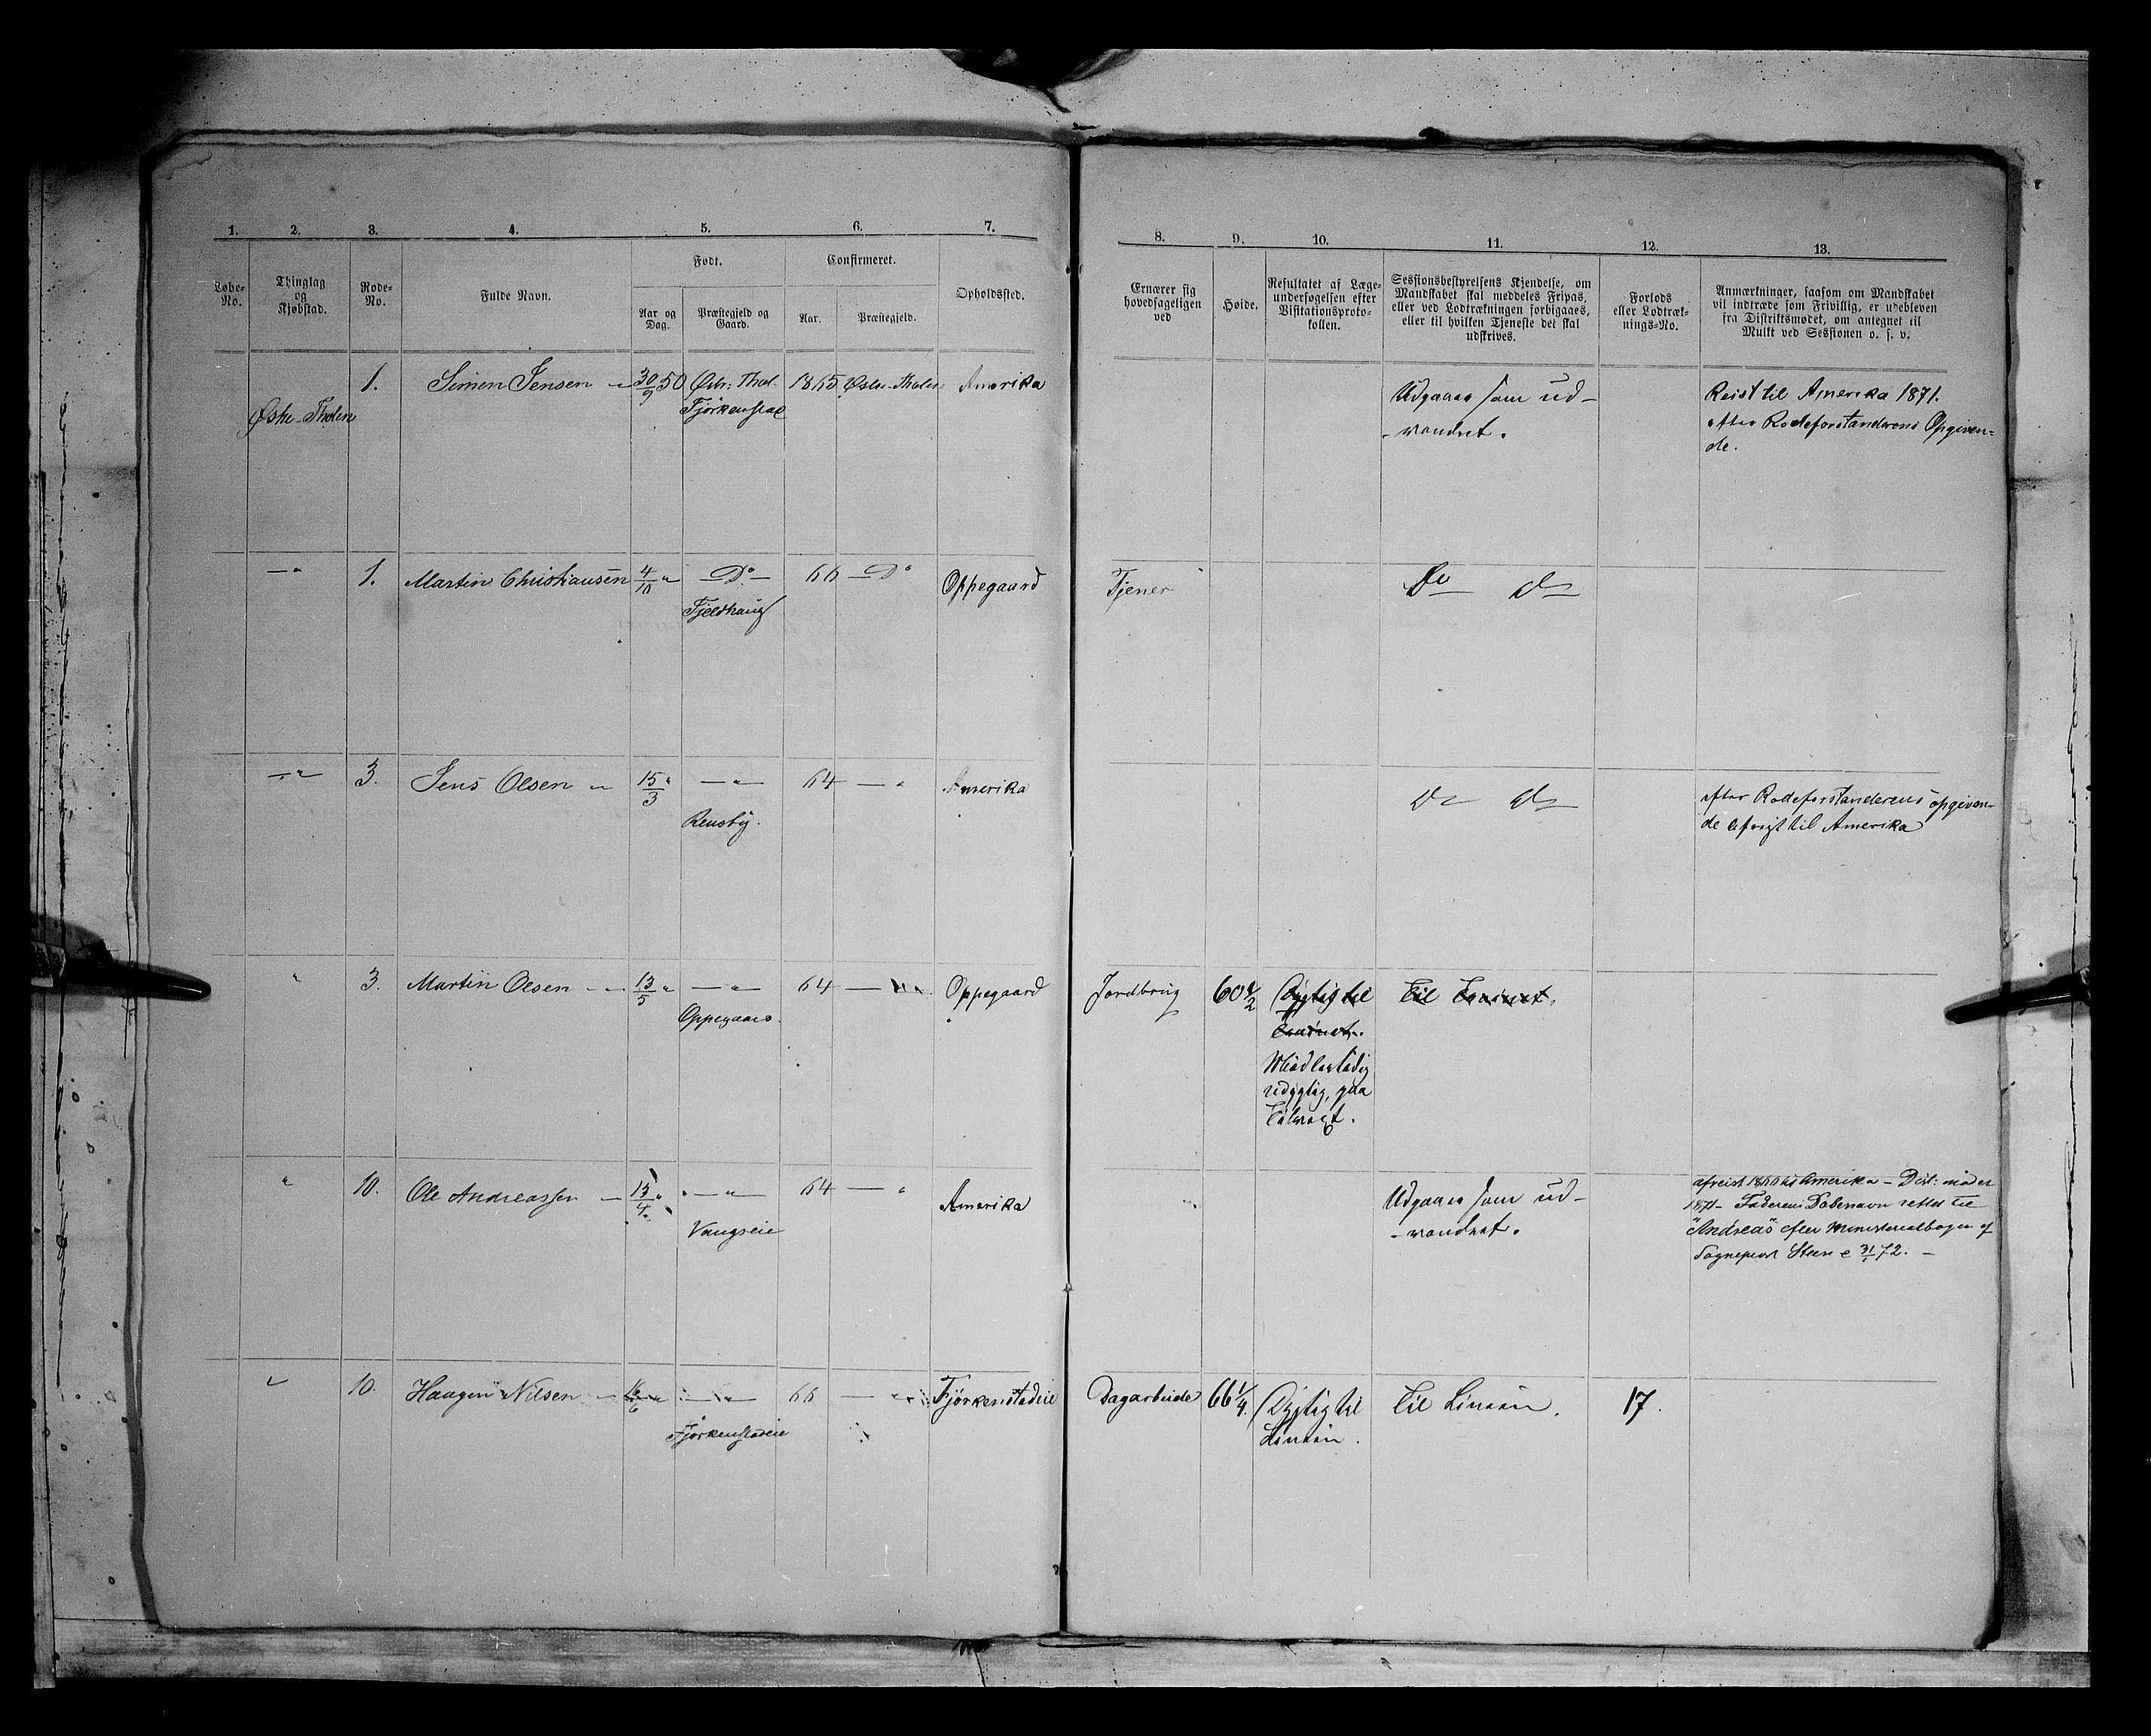 1. 2. 3. 4. 5. 6. 7.
8. 9. 10. 11. 12. 13.
Løbe-No.
Thinglag og Kjøbstad.
Rode-No.
Fulde Navn.
Født.
Aar og Dag.
Præstegjeld og Gaard.
Confirmeret.
Aar.
Præstegjeld.
Opholdssted.
Ernærer sig hovedsageligen ved
Høide.
Resultatet af Læge-
undersøgelsen efter
Visitationsproto-
kollen.
Sessionsbestyrelsens Kjendelse, om
Mandskabet skal meddeles Fripas,
eller ved Lodtrækningen forbigaaes,
eller til hvilken Tjeneste det skal
udskrives.
Forlods
eller Lodtræk-
nings-No.
Anmærkninger, saasom om Mandskabet
vil indtræde som Frivillig, er udebleven
fra Distriktsmødet, om antegnet til
Mulkt ved Sessionen o. s. v.
1. Simen Jensen – 30/9 50 Østr: Thol. 1865 Østr. Tholen Amerika
Østre-Tholen Fjörkenstad
Udgaaer som ud-
-vandret.
Reist til Amerika 1871.
efter Rodeforstanderens Opgiven-
de.
—" 1. Martin Christiansen 4/10 " — Do — 66 — Do Oppegaard Tjener Do Do
Fjeldhaug
—" 3. Jens Olsen " 15/3 " — " — 64 — " Amerika Do Do
Rensby.
efter Rodeforstanderens opgiven-
de afreist til Amerika
" 3. Martin Olsen – 13/5 " — " — 64 — " Oppegaard Jordbrug 60 1/2 Dygtig til Til Trainet.
Oppegaard.
Trainet.
Midlertidig
udygtig, paa
Tilvæxt.
" 10. Ole Andreassen – 13/4 " — " — 64 — " Amerika
Vangseie
Udgaaer som ud-
-vandret.
afreist 1866 til Amerika – Dist: mødet
1871 – Faderens Døbenavn rettet til
"Andreas" efter Ministerialbogen af
Sognepræst Steen 31/1 72. –
" 10. Haagen Nilsen – 16/6 " — " — 66 — " Fjörkenstadeie Dagarbeide 66 1/4. Dygtig til Til Linien. 17.
Fjörkenstadeie
Linien.